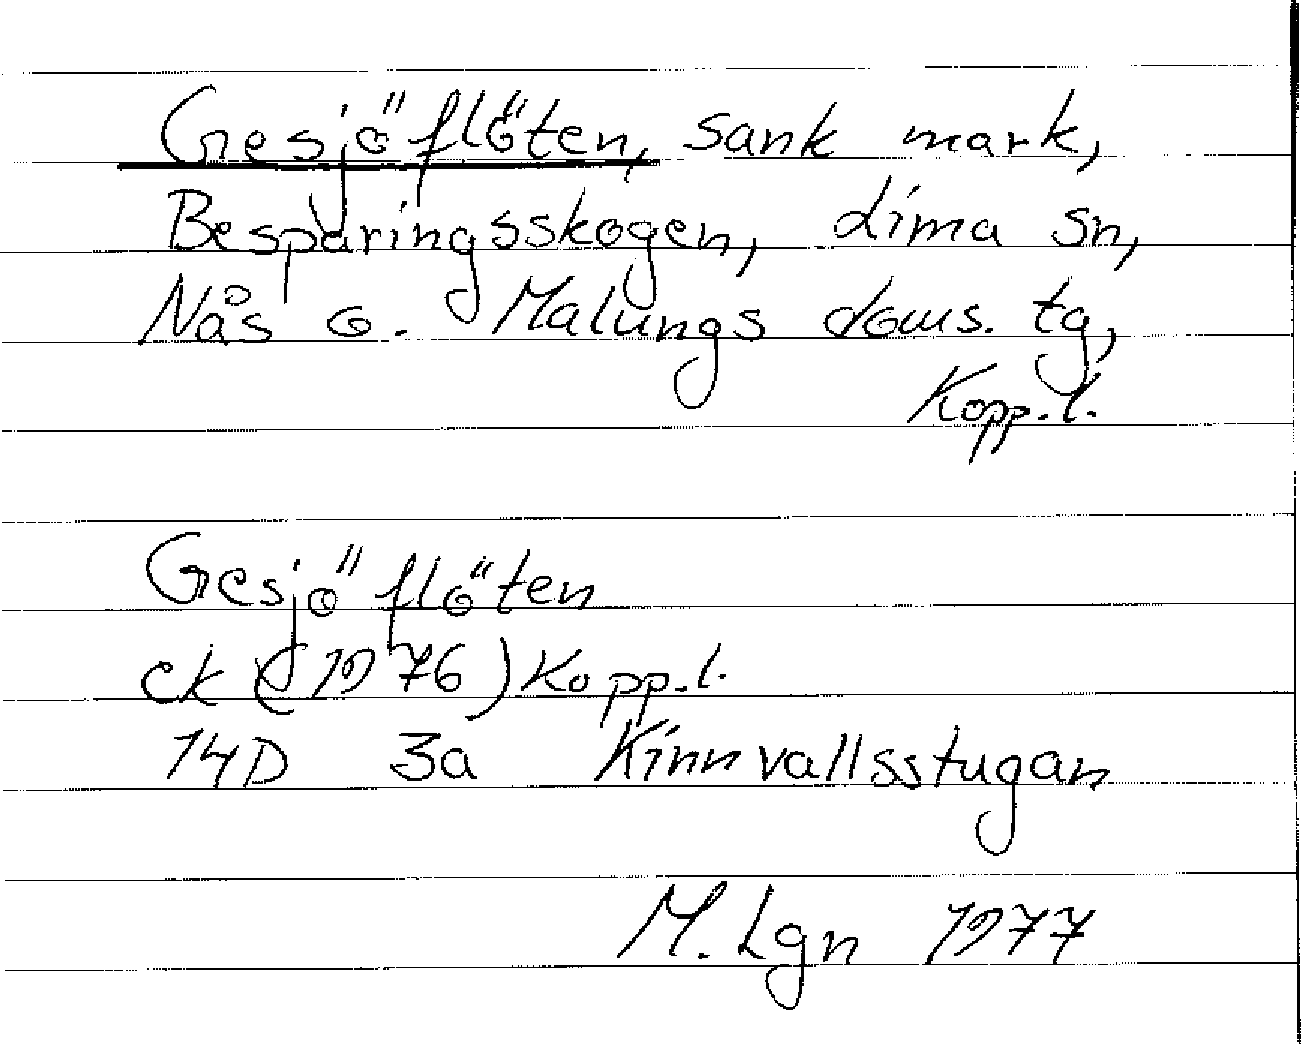 Gesjöflöten, sank mark,
Besparingsskogen, Lima sn,
Nås o. Malungs doms. tg,
Kopp. l.
Gesjöflöten
ek (1976) Kopp. l.
14D 3a Kinnvallsstugan
M. Lgn 1977